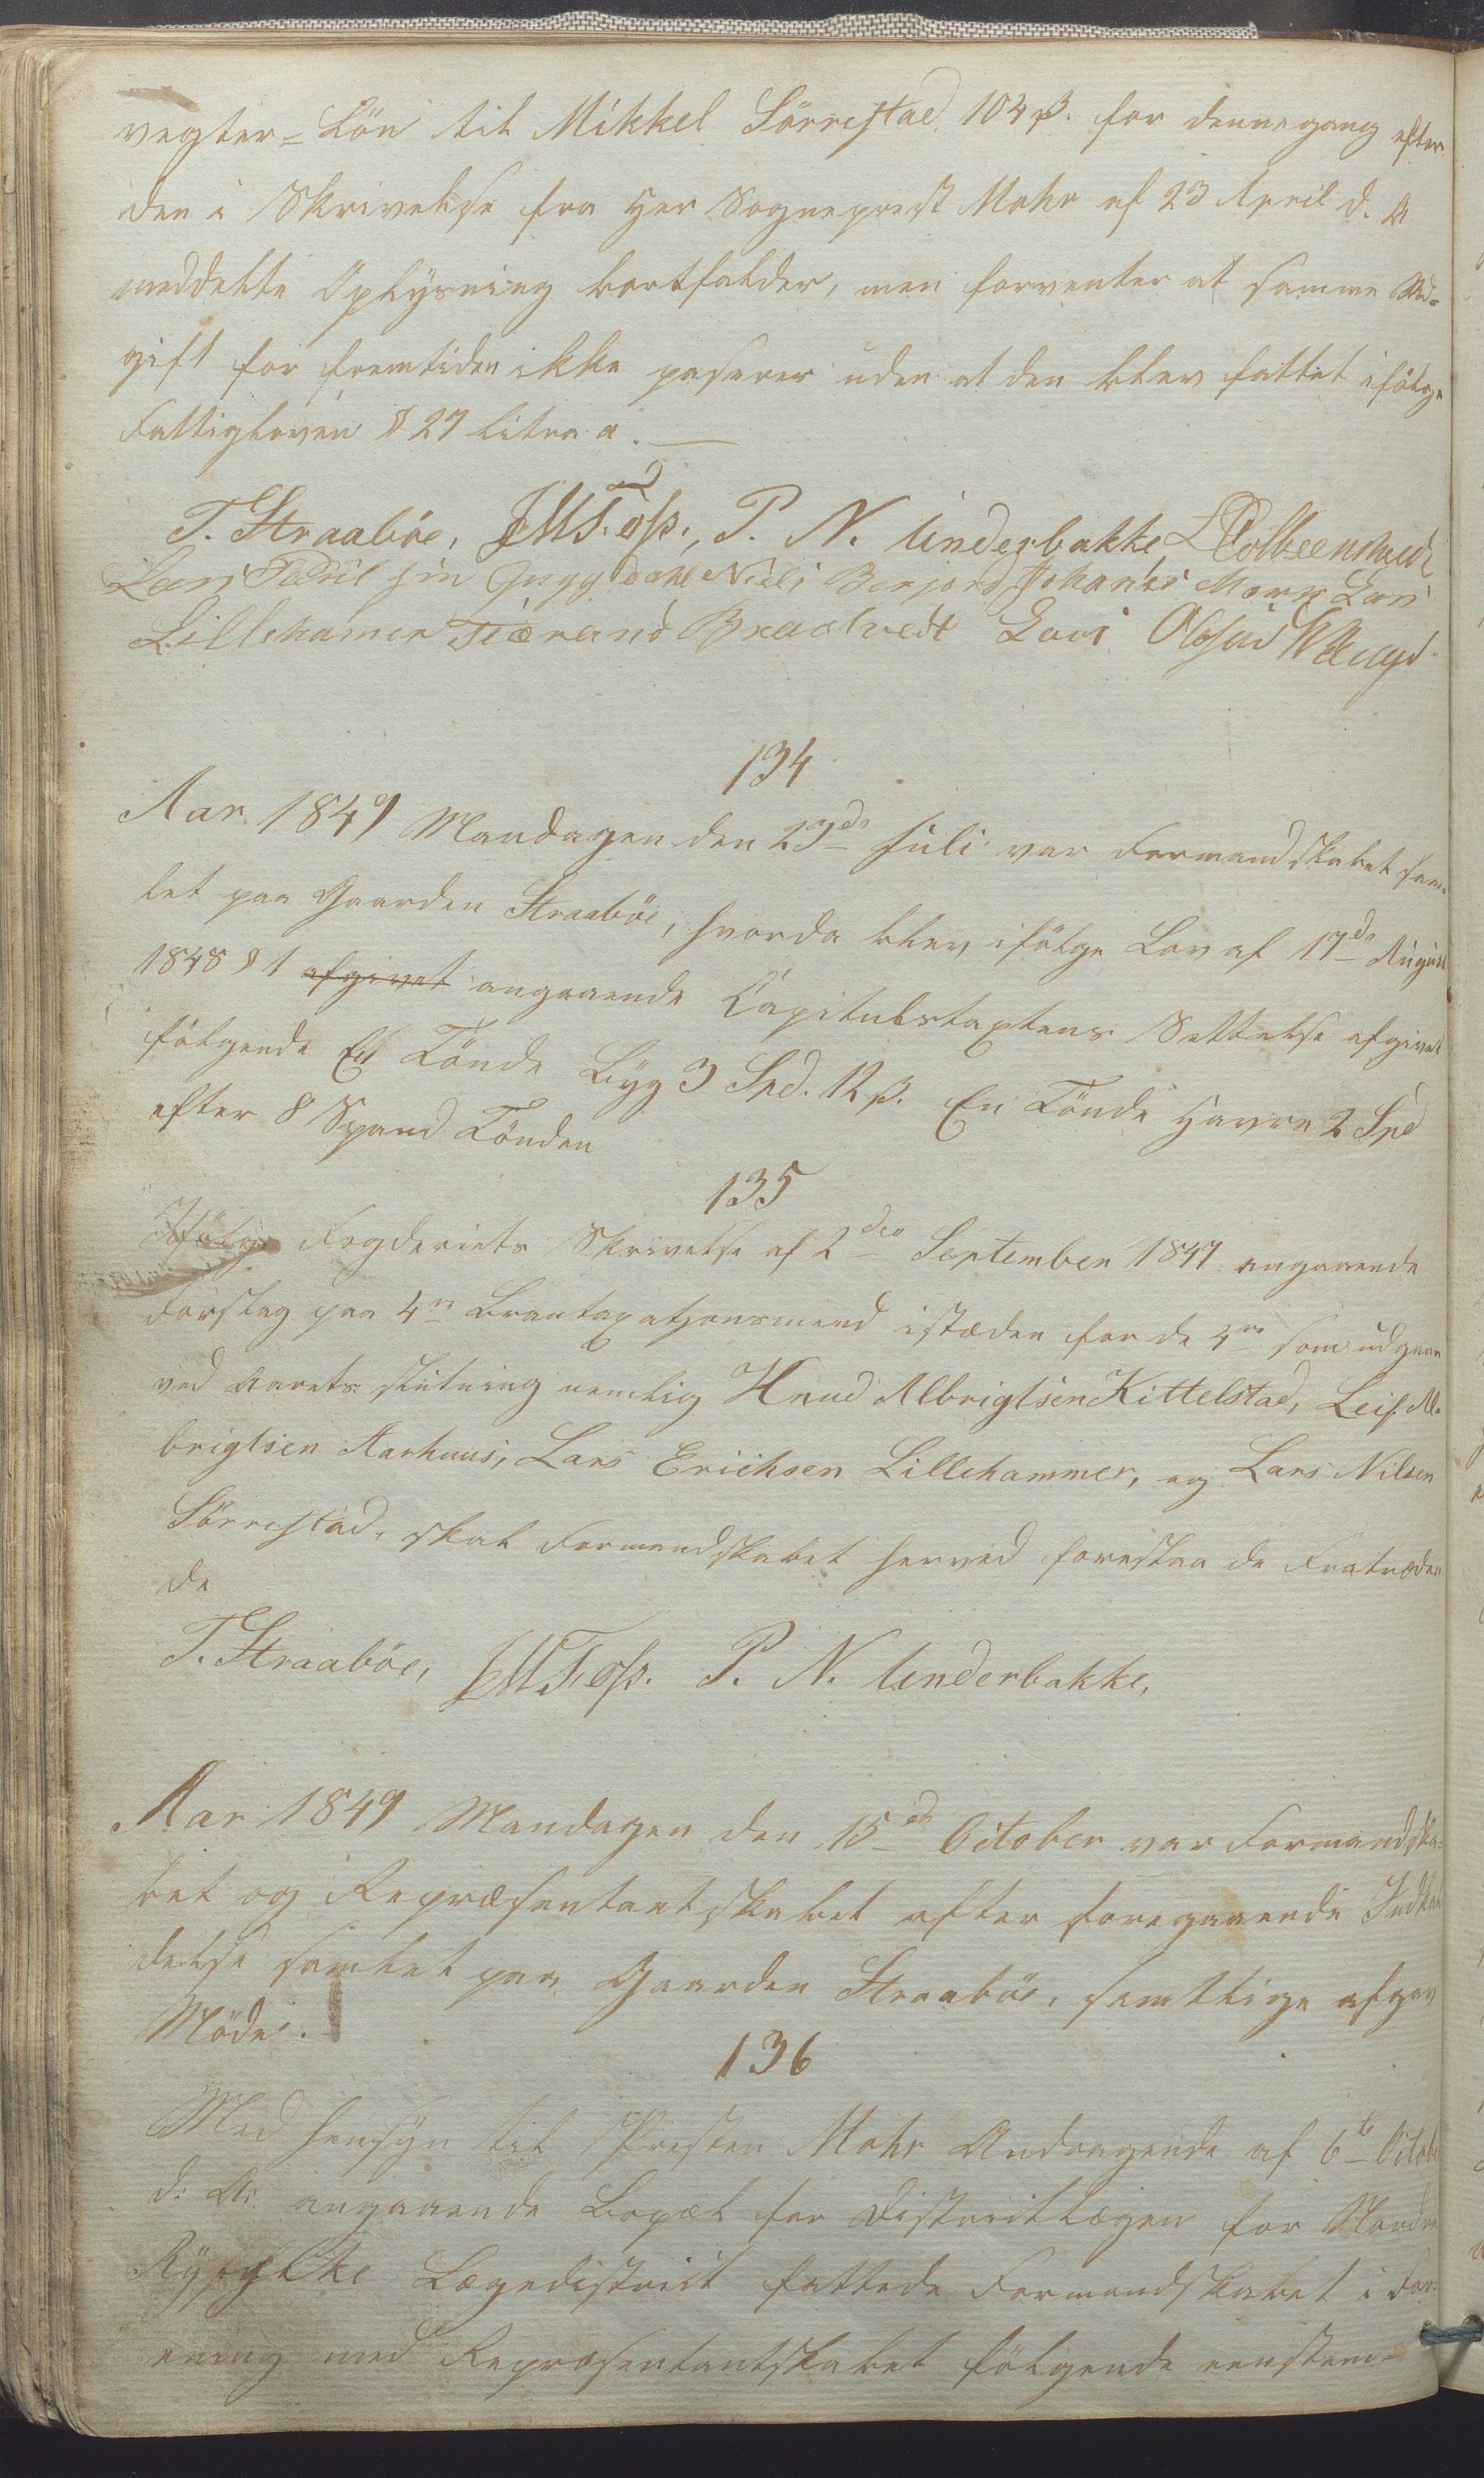 vegter-Lön til Mikkel Sörrestad 104 ß. for dennegang efter
den i Skrivelse fra Her Sogneprest Mohr af 23 April d. A
meddelte Oplysning bortfalder, men forventer at samme Ud-
gift for fremtiden ikke paserer uden at den blev fattet ifölge
Fattigloven § 27 litra a.
T. Straaböe, P. N. Underbakke
Johanes Mörk Lars
Lillehamer Tiærand Bradvedt
134
Aar 1849 Mandagen den 23de Juli var Formandskabet sam-
let paa Gaarden Straaböe, hvorda blev ifölge Lov af 17de August
1848 § 1 afgivet angaaende Capitulstaxtens Settelse afgivet
fölgende En Tönde Byg 3 Spd. 12 ß. En Tönde Havre 2 Spd
efter 8 Spand Tönden
135
Ifölge Fogderiets Skrivelse af 2den September 1847 angaaende
Forslag paa 4re Brantaxationsmend istæden for de 4re som udgaar
ved Aarets slutning nemlig Knud Albrigtsen Kittelstad, Leif Al-
brigtsen Aarhuus, Lars Erichsen Lillehammer, og Lars Nilsen
Sörrestad, skal Formandskabet herved foreslaa de Fratræden
de
T. Straaböe, P. N. Underbakke,
Aar 1849 Mandagen den 15de October var Formandska-
bet og Repræsentantskabet efter foregaaende Indkal
delse samlet paa Gaarden Straaböe, samtlige afgav
Möde.
136
Med hensyn til Presten Mohr Andragende af 6te Octob
d. A. angaaende Bopæl for Districtlægen for Nordre
Ryfylke Lægedistrict fattede Formandskabet i For-
ening med Repræsentantskabet fölgende eenstem-